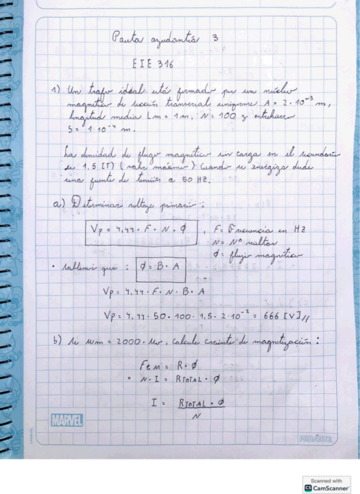 Pauta ayudantía 3
EIE 316
1) Un trafo ideal está formado por un núcleo
magnético de sección transversal uniforme A = 2·10⁻² m,
longitud media Lm = 1m, N = 100 y entrehierro
S = 1·10⁻⁴ m.
La densidad de flujo magnético sin carga en el secundario
es 1,5 [T] (valor máximo) cuando se energiza desde
una fuente de tensión a 50 HZ.
a) Determinar voltaje primario:
Vp = 4,44 · F · N · Ø , F = Frecuencia en HZ
N = Nº vueltas
Ø = flujo magnético
• sabemos que : Ø = B · A
Vp = 4,44 · F · N · B · A
Vp = 4,44 · 50 · 100 · 1,5 · 2·10⁻² = 666 [V] //
b) Si μm = 2000 · μo, calcule corriente de magnetización :
Fem = R · Ø
• N · I = RTOTAL · Ø
I = RTOTAL · Ø
N
MARVEL
PROARTE
Scanned with
CS CamScanner